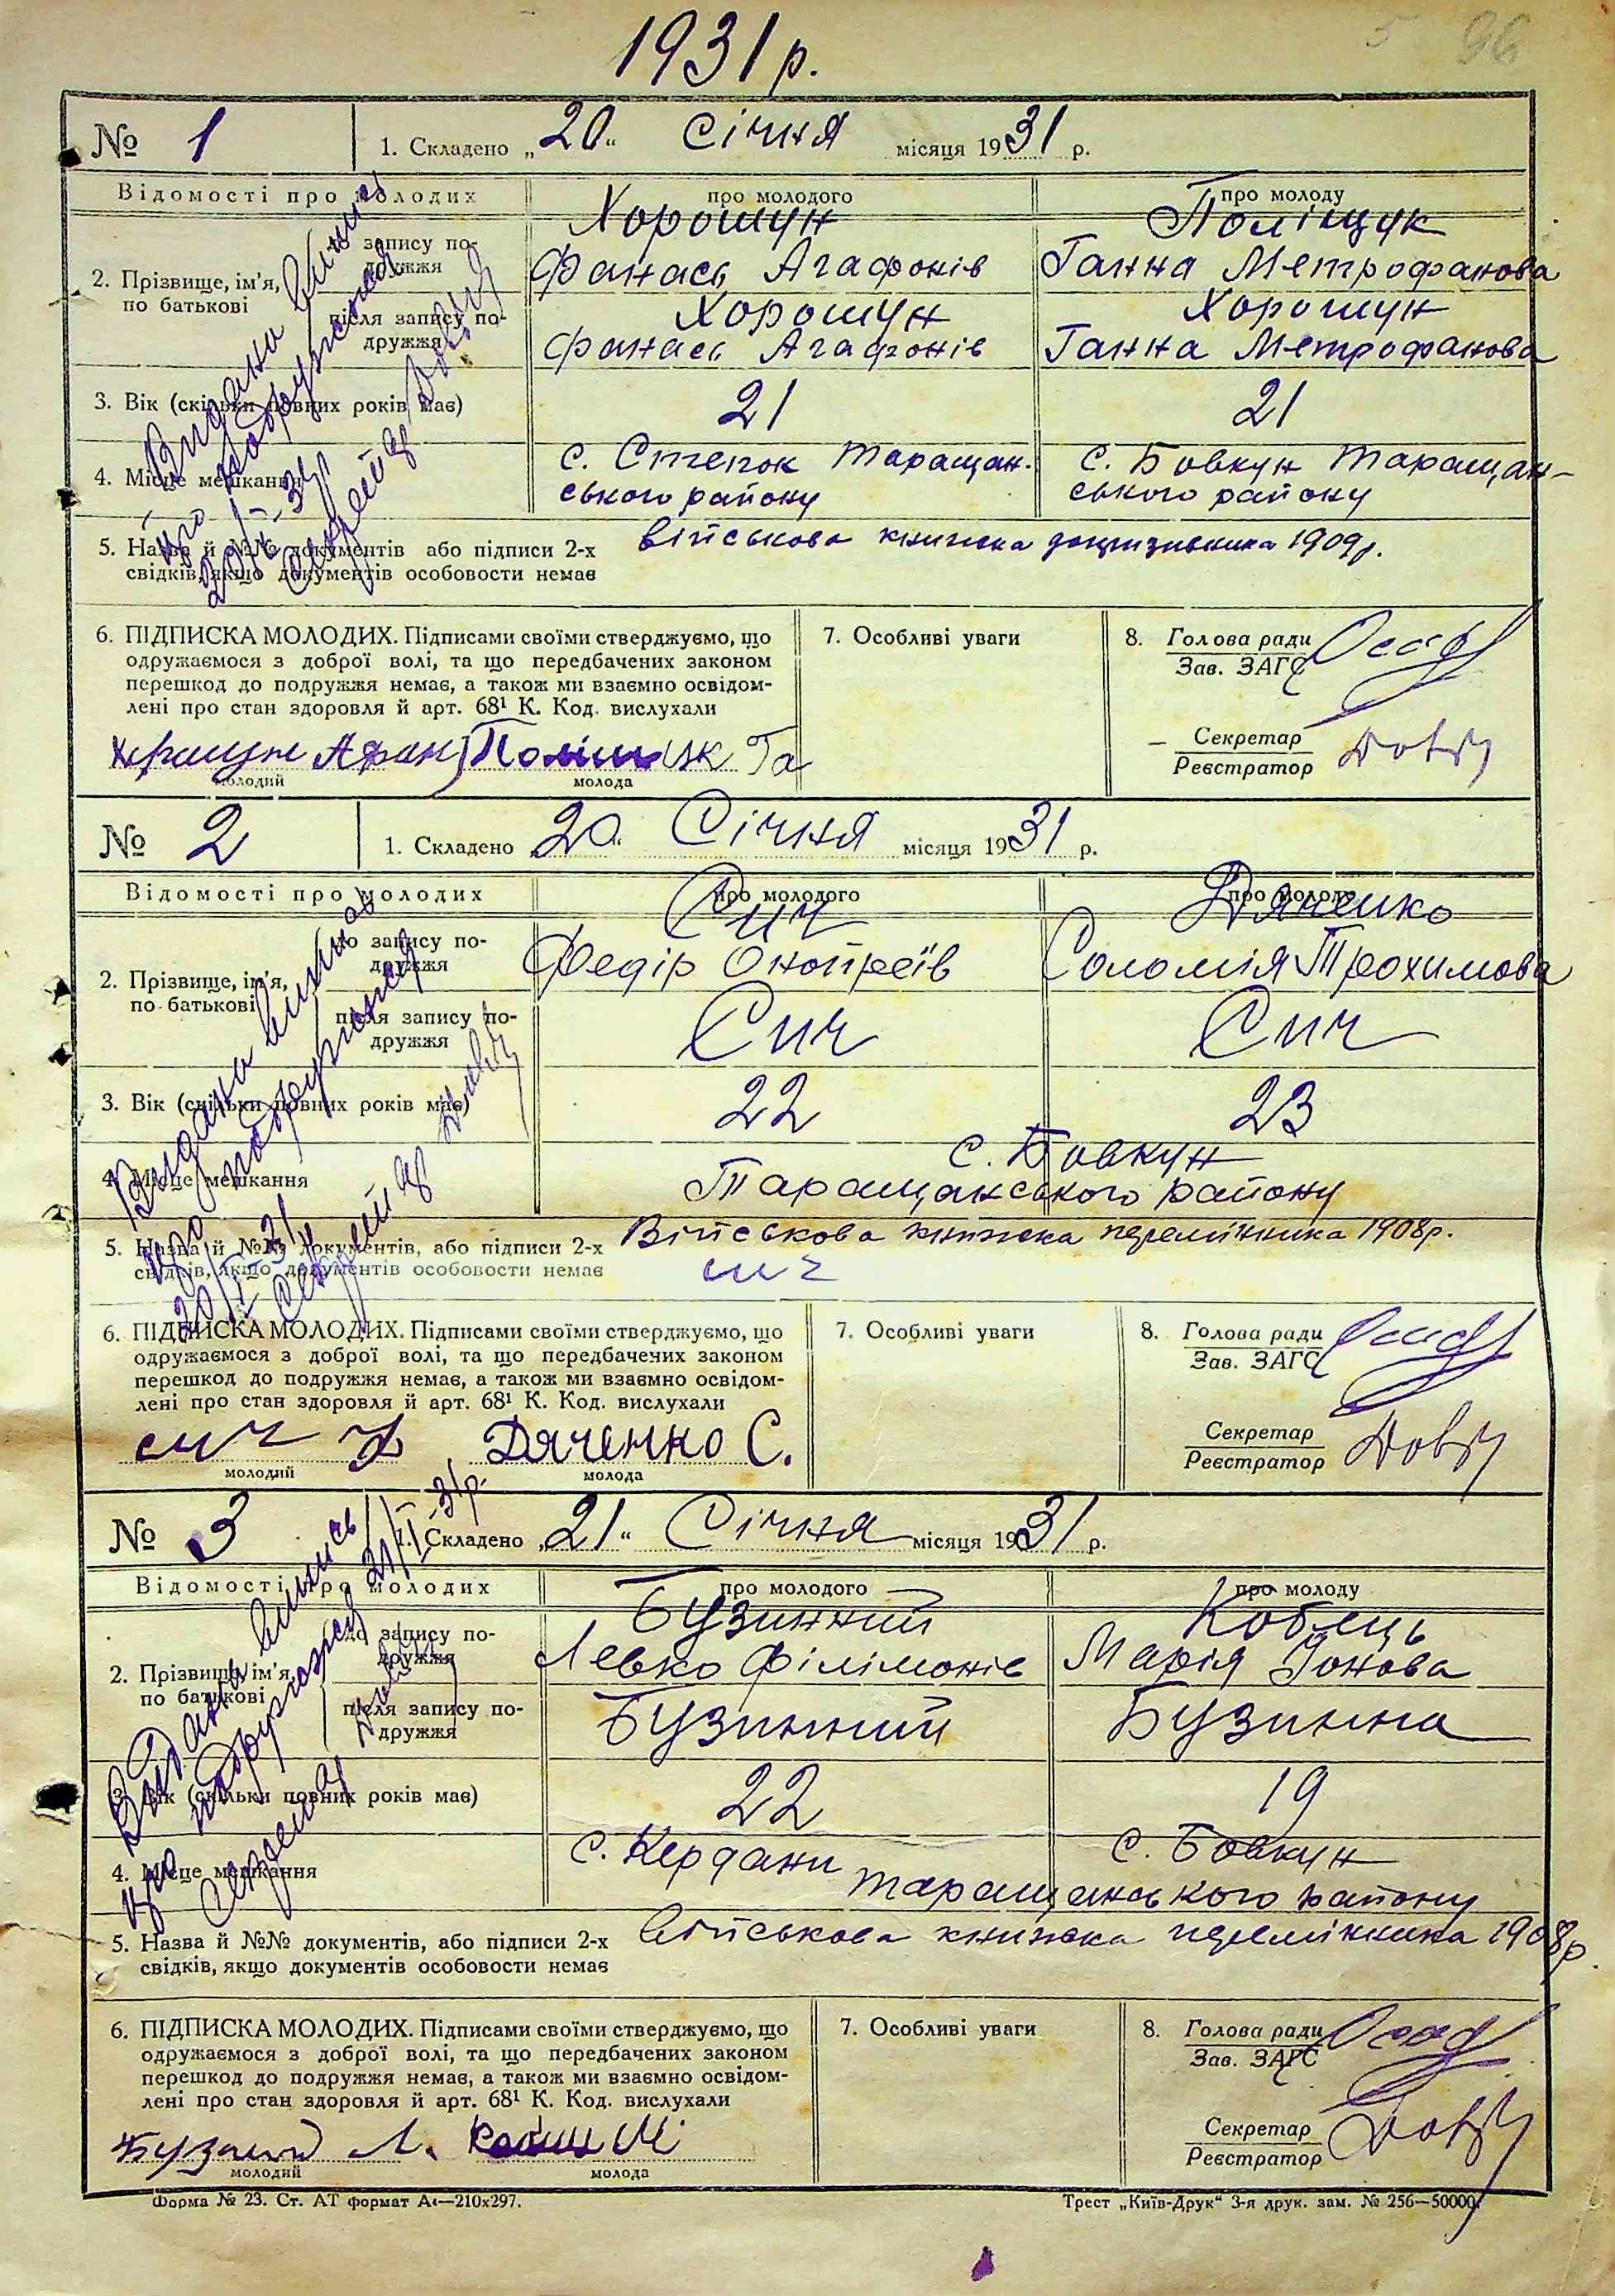 5 96
1931 р.
№ 1
1. Складено „20“ Січня місяця 1931 р.
Відомості про молодих
про молодого
про молоду
2. Прізвище, ім’я, по батькові
запису по-
дружжя
Хорошун
Фанась Агафонів
Поліщук
Ганна Метрофанова
після запису по-
дружжя
Хорошун
Фанась Агафонів
Хорошун
Ганна Метрофанова
3. Вік (скільки повних років має)
21
21
4. Місце мешкання
с. Степок Таращан-
ського району
с. Бовкун Таращан-
ського району
5. Назва й №№ документів або підписи 2-х
свідків, якщо документів особовости немає
військова книжка допризивника 1909р.
Видана виписъ
про подружжя
20/I-31
Секретар
6. ПІДПИСКА МОЛОДИХ. Підписами своїми стверджуємо, що
одружаємося з доброї волі, та що передбачених законом
перешкод до подружжя немає, а також ми взаємно освідом-
лені про стан здоровля й арт. 68¹ К. Код. вислухали
Поліщук Га
молодий
молода
7. Особливі уваги
8. Голова ради
Зав. ЗАГС
Секретар
Реєстратор
№ 2
1. Складено „20“ Січня місяця 1931 р.
Відомості про молодих
про молодого
про молоду
2. Прізвище, ім’я,
по батькові
до запису по-
дружжя
Сич
Федір Онопреїв
Дяченко
Соломія Трохимова
після запису по-
дружжя
Сич
Сич
3. Вік (скільки повних років має)
22
23
4. Місце мешкання
с. Бовкун
Таращанського району
5. Назва й №№ документів, або підписи 2-х
свідків, якщо документів особовости немає
Військова книжка перемінника 1908р.
сич
Видана виписъ
про подружжя
20/I-31
Секретар
6. ПІДПИСКА МОЛОДИХ. Підписами своїми стверджуємо, що
одружаємося з доброї волі, та що передбачених законом
перешкод до подружжя немає, а також ми взаємно освідом-
лені про стан здоровля й арт. 68¹ К. Код. вислухали
сич Ф
Дяченко С.
молодий
молода
7. Особливі уваги
8. Голова ради
Зав. ЗАГС
Секретар
Реєстратор
№ 3
1. Складено „21“ Січня місяця 1931 р.
Відомості про молодих
про молодого
про молоду
2. Прізвище, ім’я,
по батькові
до запису по-
дружжя
Бузинний
Левко Філімонів
Кобець
Марія Йонова
після запису по-
дружжя
Бузинний
Бузинна
3. Вік (скільки повних років має)
22
19
4. Місце мешкання
с. Кердани
с. Бовкун
Таращанського району
5. Назва й №№ документів, або підписи 2-х
свідків, якщо документів особовости немає
Військова книжка перемінника 1908р.
Видана виписъ
про подружжя 21/I-31р.
Секретар
6. ПІДПИСКА МОЛОДИХ. Підписами своїми стверджуємо, що
одружаємося з доброї волі, та що передбачених законом
перешкод до подружжя немає, а також ми взаємно освідом-
лені про стан здоровля й арт. 68¹ К. Код. вислухали
молодий
молода
7. Особливі уваги
8. Голова ради
Зав. ЗАГС
Секретар
Реєстратор
Форма № 23. Ст. АТ формат А₄—210х297.
Трест „Київ-Друк“ 3-я друк. зам. № 256—50000.